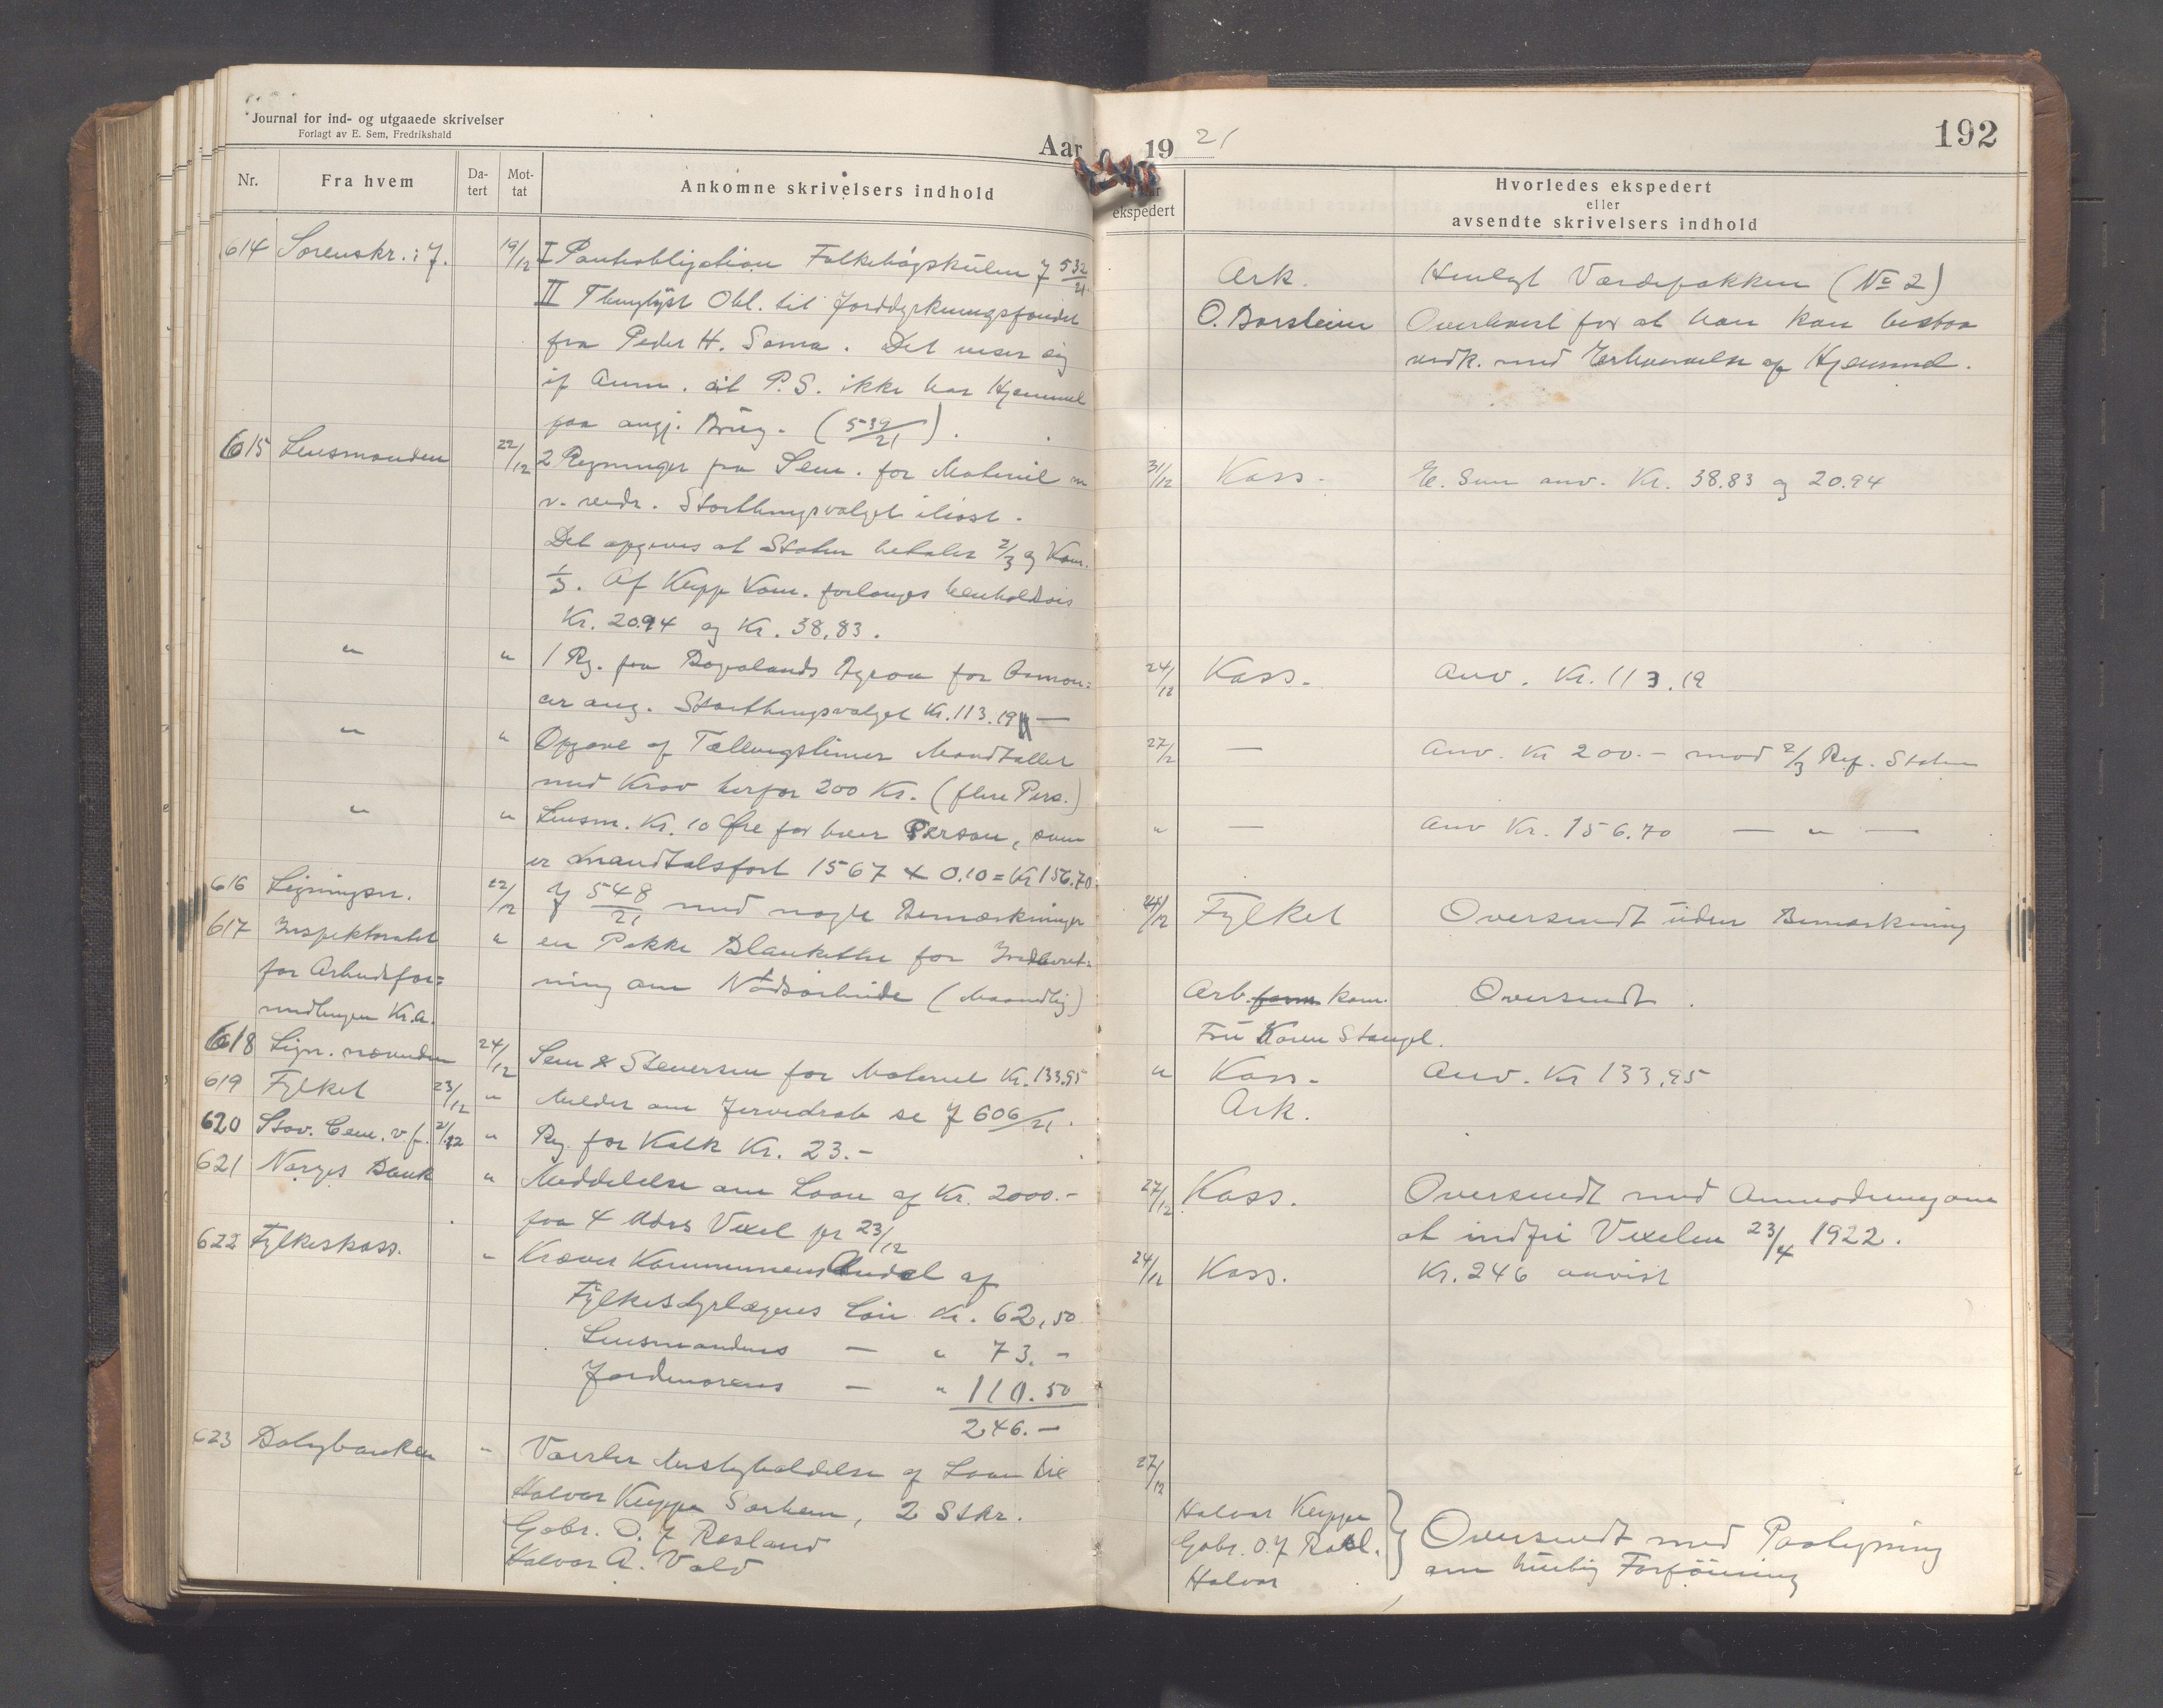 Journal for ind- og utgaaede skrivelser
Forlagt av E. Sem, Fredrikshald
Aar
Nr. Fra hvem Da-tert Mot-tat Ankomne skrivelsers indhold
614 Sorenskr. i J. 19/12 I Pantobligation Folkehøgskulen J 532/21
II Thinglyst Obl. til Jorddyrkningsfondet
fra Peder H. Soma. Det viser sig
if Anm. at P.S. ikke har Hjemmel
paa angj. Brug. (539/21).
615 Lensmanden 22/12 2 Regninger fra Sem. for Materiel m
v. vedr. Storthingsvalget ihøst.
Det opgives at Staten betaler 2/3 og Kom.
1/3. Af Klepp Kom. forlanges henholdsvis
Kr. 20.94 og Kr. 38,83.
" " 1 Rg. fra Rogalands Avis for Annon-
cer ang. Storthingsvalget Kr. 113.19 —
" " Opgave of Tællingslimer Mandtallet
med Krav herfor 200 Kr. (flere Pers.)
" " Lensm. Kr. 10 Øre for hver Person, som
er mandtalsført 1567 x 0.10 = Kr 156.70
616 Ligningsn. 22/12 J 548/21 med nogle Bemærkninger
617 Inspektoratet " en Pakke Blanketter for Indberet-
for Arbeidsfor= ning om Nødsarbeide (Maandlig)
midlingen Kr.a.
618 Lign. nævnden 24/12 Sem & Stenersen for Materiel Kr. 133.95
619 Fylket 23/12 " Melder om Jervedrab se J 606/21.
620 Stav. Cem. v.f. 21/12 " Rg. for Kalk Kr. 23.-
621 Norges Bank " Meddelelse om Laan af Kr. 2000.-
paa 4 Mdrs Vexel pr 23/12
622 Fylkeskass. " Kræver Kommunens Andel af
Fylkesdyrlægens Løn Kr. 62,50
Lensmandens — " 73.-
Jordmorens — " 110.50
246.—
623 Boligbanken " Varsler Misligholdelse af Laan til
Halvor Kleppe Sørheim, 2 Stkr.
Gabr. O. J Rosland
Halvor A. Vold
19 21
192
ekspedert
Hvorledes ekspedert
eller
avsendte skrivelsers indhold
Ark. Henlagt Værdipakken (No 2)
O. Borsheim Overlevert for at han kan bistaa
vedk. med Erhvervelse af Hjemmel.
31/12 Kass. E. Sem anv. Kr. 38.83 og 20.94
24/12 Kass. Anv. Kr. 113.19
27/12 — Anv. Kr 200.- mod 2/3 Ref. Staten
" — Anv Kr. 156.70 — " —
24/12 Fylket Oversendt uden Bemærkning
Arb. form kom. Oversendt.
Fru Karen Stangel.
" Kass. Anv. Kr 133.95
Ark.
27/12 Kass. Oversendt med Anmodning om
at indfri Vexelen 23/4 1922.
24/12 Kass. Kr. 246 anvist
27/12
Halvor Kleppe
Gabr. O. J Rosl. Oversendt med Paategning
Halvor om hurtig Forføining